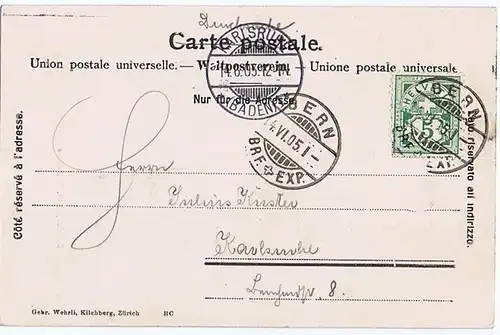 Drucksache
Carte postale.
Union postale universelle. — Weltpostverein. — Unione postale universale
Nur für die Adresse.
KARLSRUHE
14.6.05.12-1N.
(BADEN)
BERN
14.VI.05.1-
BRF. EXP.
HELVETIA
5
BERN
BRF. EXP.
Côté réservé à l'adresse.
Lato riservato all indirizzo.
Herrn
Julius Küster
Karlsruhe
8.
Gebr. Wehrli, Kilchberg, Zürich BC